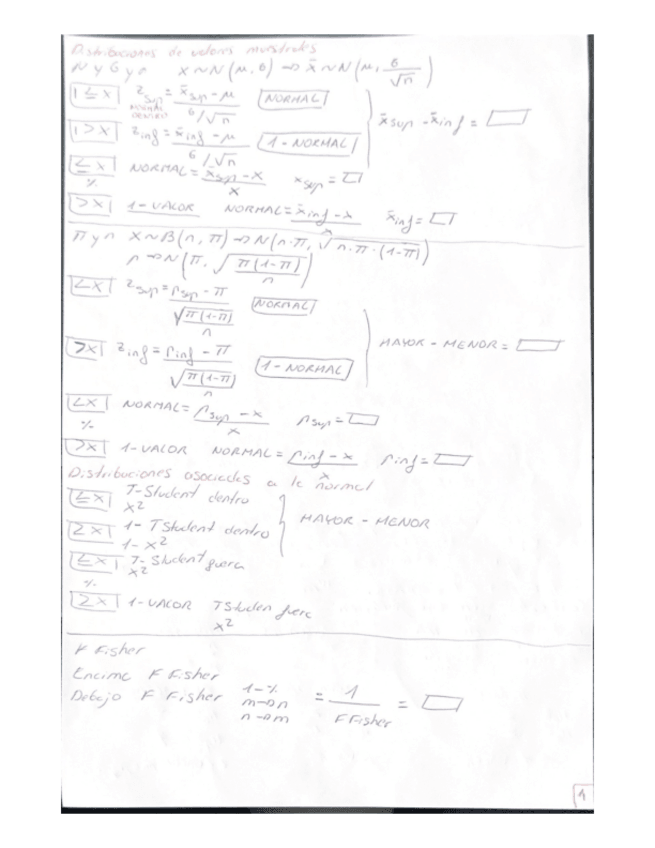 Distribuciones de valores muestrales
N y σ y n x~N(μ, σ) => x̄~N(μ, σ/√n)
≤x z sup = x̄sup - μ / σ/√n NORMAL
NORMAL DENTRO
>x z inf = x̄inf - μ / σ/√n 1 - NORMAL
x̄sup - x̄inf =
≤x % NORMAL = x̄sup - x / x x sup =
>x 1 - VALOR NORMAL = x̄inf - x / x x̄inf =
π y n x~B(n, π) => N(n·π, √n·π·(1-π))
p => N(π, √π(1-π)/n)
≤x z sup = p sup - π / √π(1-π)/n NORMAL
>x z inf = p inf - π / √π(1-π)/n 1 - NORMAL
MAYOR - MENOR =
≤x % NORMAL = p sup - x / x p sup =
>x 1 - VALOR NORMAL = p inf - x / x p inf =
Distribuciones asociades a la normal
≤x T-Student dentro
x²
≥x 1 - T Student dentro
1 - x²
MAYOR - MENOR
≤x T-Student fuera
% x²
≥x 1 - VALOR TStuden fuera
x²
F Fisher
Encima F Fisher
Debajo F Fisher 1-% m->n n->m = 1 / F Fisher =
1